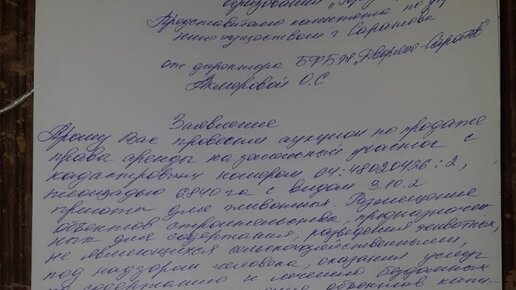 Председателю комитета по
имуществом г. Саратова
от директора БФБЖ "Дворяне-Саратов"
О.С.
Заявление
Прошу Вас провести аукцион по продаже
права аренды на земельный участок с
кадастровым номером 64:48020436:2,
площадью 6840 га с видом 3.10.2
приюты для животных. Размещение
объектов строительства, предназначен-
ных для содержания, разведения животных,
не являющихся сельскохозяйственными,
под надзором человека, оказания услуг
содержанию и лечению бездомных
объектов капи-